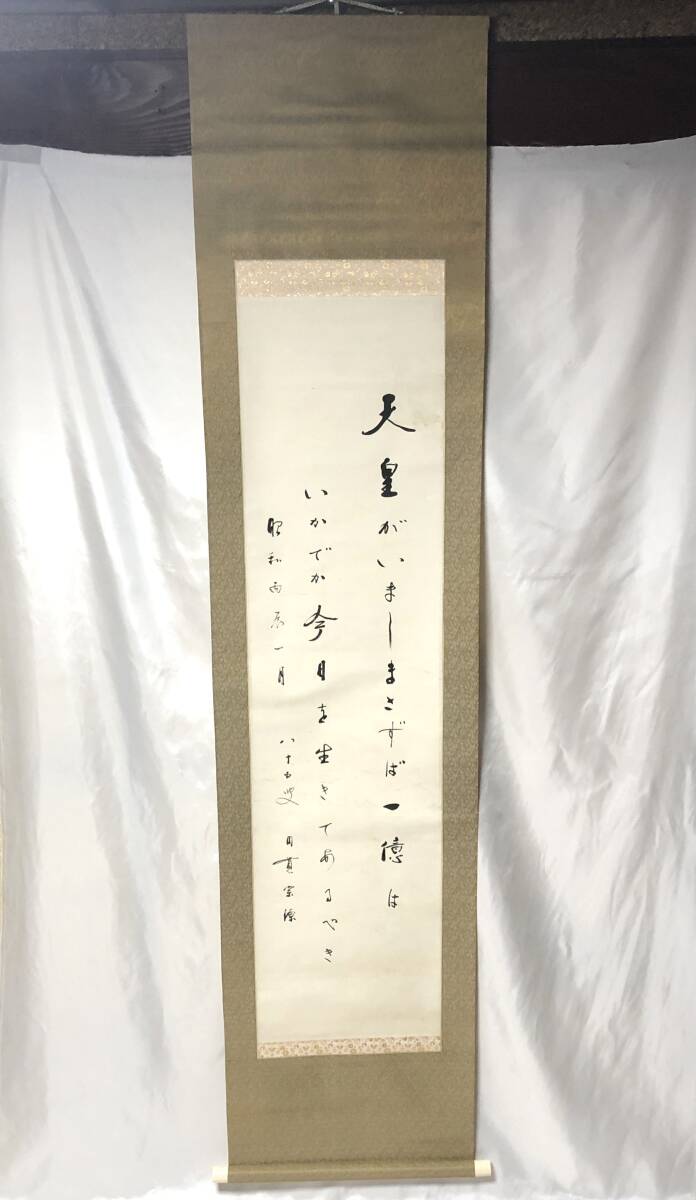 天皇がいましまさずば一億は
いかでか今日を生きてあるべき
昭和丙辰一月 八十五叟 日真宗源